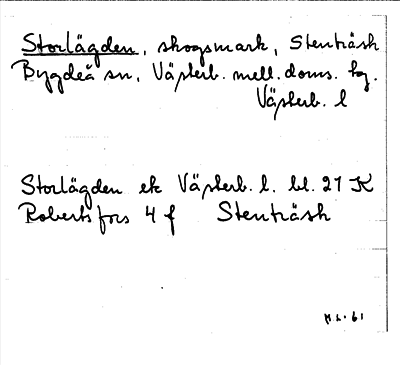 Storlägden, skogsmark, Stenträsk
Bygdeå sn, Västerb. mell. doms. tg.
Västerb. l
Storlägden ek Västerb. l. bl. 21 K
Robertsfors 4 f Stenträsk
M.L. 61